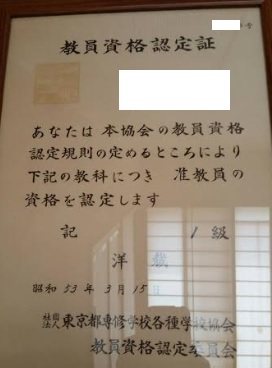 号
教員資格認定証
あなたは本協会の教員資格
認定規則の定めるところにより
下記の教科につき 准教員の
資格を認定します
記 1級
洋裁
昭和53年3月15日
社団法人 東京都専修学校各種学校協会
教員資格認定委員会